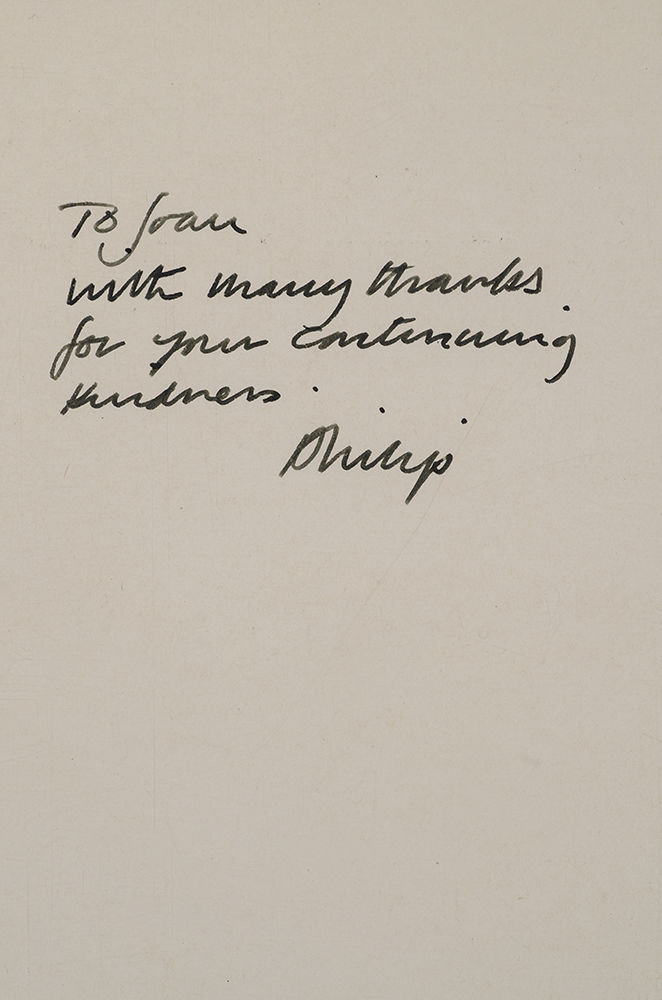 To Joan
with many thanks
for your continuing
kindness.
Philip